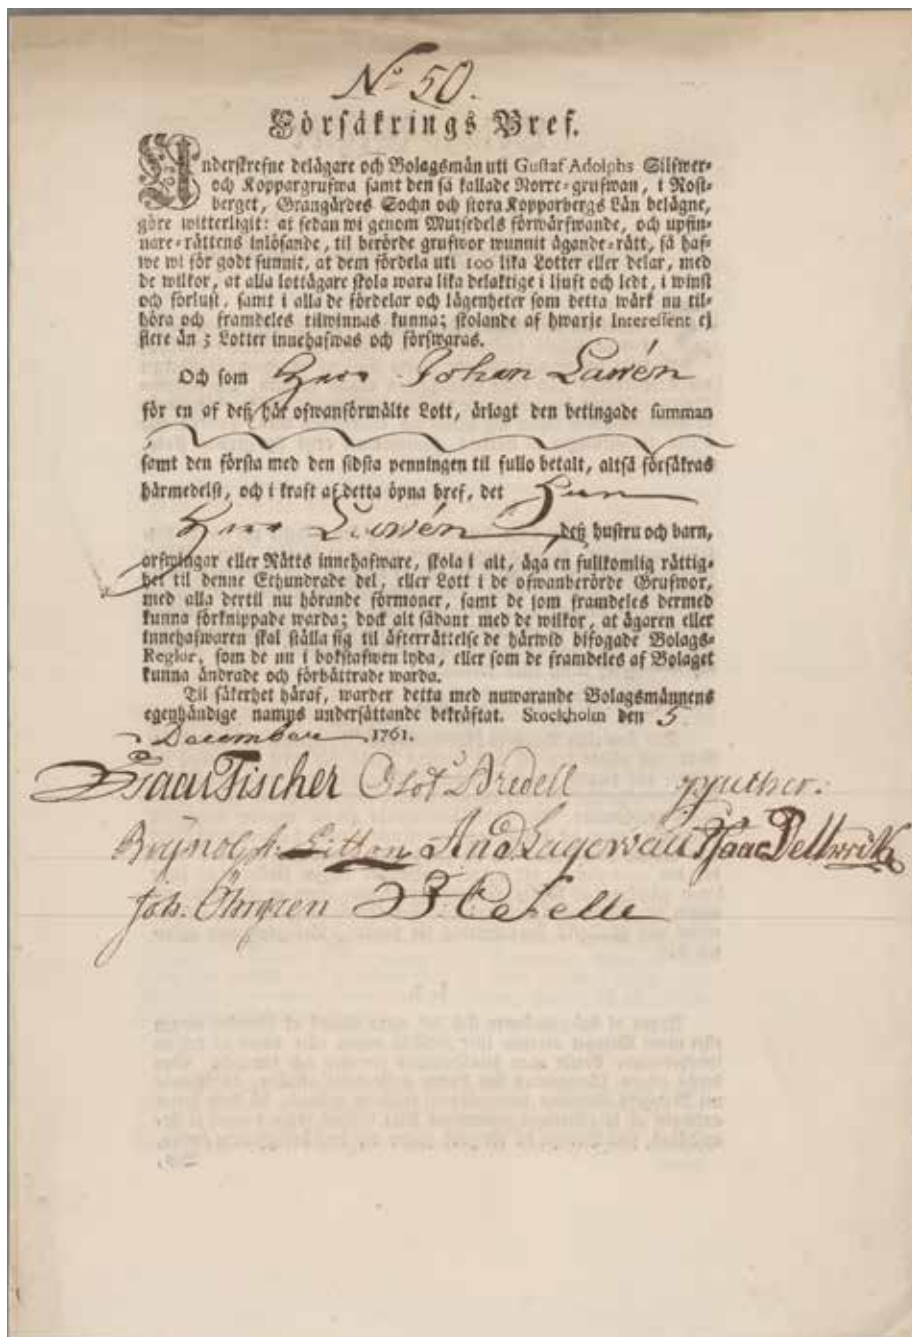 No 50.
Försäkrings Bref.
Underskrefne delägare och Bolagsmän uti Gustaf Adolphs Silfwer-
och Koppargrufwa samt den så kallade Norre-grufwan, i Rost-
berget, Grangärdes Sochn och stora Kopparbergs Län belägne,
göre witterligit: at sedan wi genom Mutsedels förwärfwande, och upfin-
nare-rättens inlösande, til berörde grufwor wunnit ägande-rätt, så haf-
we wi för godt funnit, at dem fördela uti 100 lika Lotter eller delar, med
de wilkor, at alla lottägare skola wara lika delaktige i ljuft och ledt, i winst
och förlust, samt i alla de fördelar och lägenheter som detta wärk nu til-
höra och framdeles tilwinnas kunna; skolande af hwarje Interessent ej
flere än 3 Lotter innehafwas och förswaras.
Och som Herr Johan Lawén
för en af deß här ofwanförmälte Lott, ärlagt den betingade summan
samt den första med den sidsta penningen til fullo betalt, altså försäkras
härmedelst, och i kraft af detta öpna bref, det
Herr Lawén deß hustru och barn,
arfwingar eller Rätts innehafware, skola i alt, äga en fullkomlig rättig-
het til denne Ethundrade del, eller Lott i de ofwanberörde Grufwor,
med alla dertil nu hörande förmoner, samt de som framdeles dermed
kunna förknippade warda; dock alt sådant med de wilkor, at ägaren eller
innehafwaren skal ställa sig til äfterrättelse de härwid bifogade Bolags-
Reglor, som de nu i bokstafwen lyda, eller som de framdeles af Bolaget
kunna ändrade och förbättrade warda.
Til säkerhet häraf, warder detta med nuwarande Bolagsmännens
egenhändige namns undersättande bekräftat. Stockholm den 5
Decembere 1761.
Isaac Tischer Olof Aredell
And Lagerwall Isaac
Joh. Öhngren